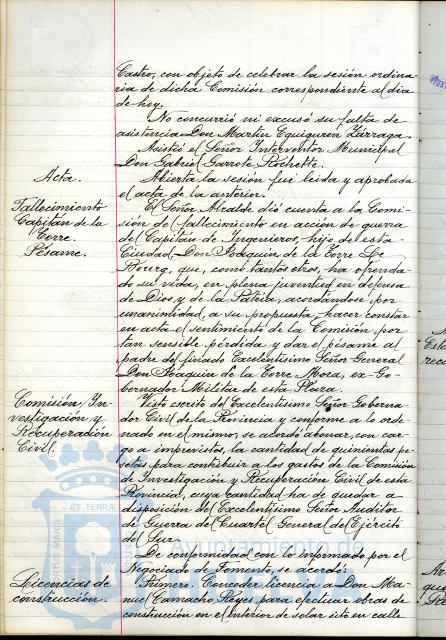 Castro, con objeto de celebrar la sesión ordina-
ria de dicha Comisión correspondiente al día
de hoy.
No concurrió ni excusó su falta de
asistencia Don Martín Equiguren Zárraga.
Asistió el Señor Interventor Municipal
Don Gabriel Garrote Rochette.
Acta.
Abierta la sesión fué leida y aprobada
el acta de la anterior.
Fallecimiento
Capitán de la
Torre.
Pésame.
El Señor Alcalde dió cuenta a la Comi-
sión del fallecimiento en acción de guerra
del Capitán de Ingenieros, hijo de esta
Ciudad Don Joaquin de la Torre Le
Bourg, que, como tantos otros, ha ofrenda-
do su vida, en plena juventud en defensa
de Dios y de la Patria, acordándose por
unanimidad, a su propuesta, hacer constar
en acta el sentimiento de la Comisión por
tan sensible pérdida y dar el pésame al
padre del finado Excelentísimo Señor General
Don Joaquin de la Torre Mora, ex-Go-
bernador Militar de esta Plaza.
Comisión In-
vestigación y
Recuperación
Civil.
Visto escrito del Excelentísimo Señor Goberna-
dor Civil de la Provincia y conforme a lo orde-
nado en el mismo, se acordó abonar, con car-
go a imprevistos, la cantidad de quinientas pe-
setas para contribuir a los gastos de la Comisión
de Investigación y Recuperación Civil de esta
Provincia, cuya cantidad ha de quedar a
disposición del Excelentísimo Señor Auditor
de Guerra del Cuartel General del Ejército
del Sur.
De conformidad con lo informado por el
Negociado de Fomento, se acordó:
Licencias de
construcción.
Primero. Conceder licencia a Don Ma-
nuel Camacho Reyes, para efectuar obras de
construcción en el interior de solar sito en calle
ET TERRAE
Ayuntamiento de